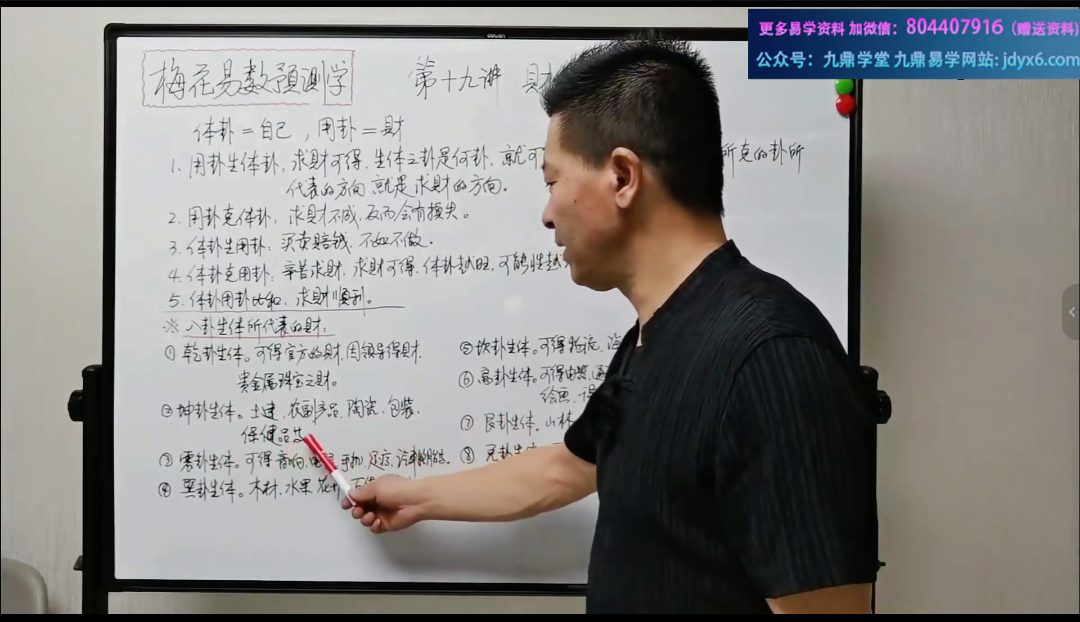 更多易学资料 加微信：804407916（赠送资料）
公众号：九鼎学堂 九鼎易学网站：jdyx6.com
deli
梅花易数预测学 第十九讲 财
体卦=自己，用卦=财
1、用卦生体卦，求财可得，生体之卦是何卦，就可 所克的卦所
代表的方向就是求财的方向。
2、用卦克体卦：求财不成，反而会有损失。
3、体卦生用卦：买卖赔钱，不如不做。
4、体卦克用卦：辛苦求财，求财可得，体卦越旺，可能性越
5、体卦用卦比和，求财顺利。
※ 八卦生体所代表的财：
① 乾卦生体。可得官方的财，因领导得财，
贵金属珠宝之财。
② 坤卦生体。土建、农副产品、陶瓷、包装、
保健品
③ 震卦生体。可得音响、手机、汽车
④ 巽卦生体。木材、水果、花
⑤ 坎卦生体。可得物流、
⑥ 离卦生体。可得
绘画、
⑦ 艮卦生体。山林
⑧ 兑卦生体